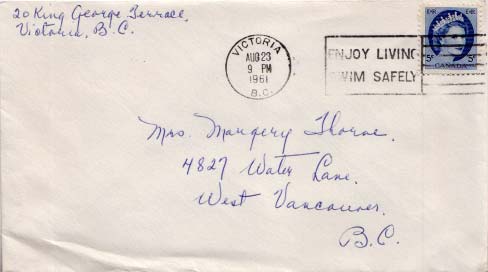 20 King George Terrace,
Victoria, B.C.
VICTORIA
AUG 23
9 PM
1961
B.C.
ENJOY LIVING
SWIM SAFELY
EIIR EIIR
5¢ 5¢
CANADA
Mrs. Margery Thorne,
4827 Water Lane,
West Vancouver,
B.C.